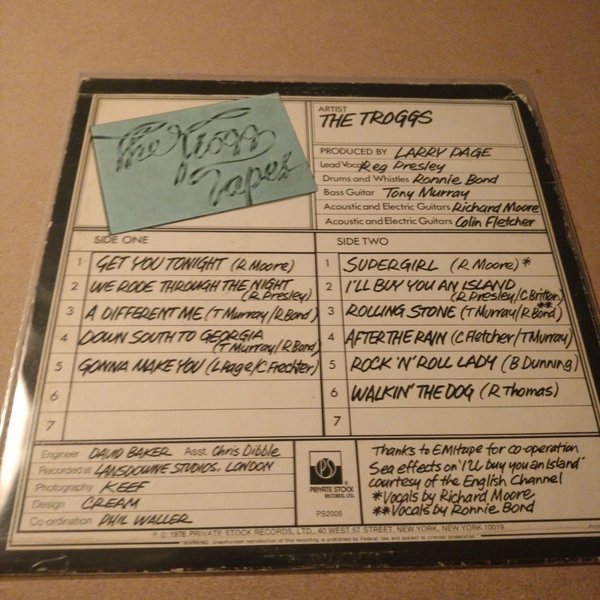 The Trogg
Tapes
ARTIST
THE TROGGS
PRODUCED BY LARRY PAGE
Lead Vocal Reg Presley
Drums and Whistles Ronnie Bond
Bass Guitar Tony Murray
Acoustic and Electric Guitars Richard Moore
Acoustic and Electric Guitars Colin Fletcher
SIDE ONE
1 GET YOU TONIGHT (R. Moore)
2 WE RODE THROUGH THE NIGHT
(R. Presley)
3 A DIFFERENT ME (T Murray/R. Bond)
4 DOWN SOUTH TO GEORGIA
(T Murray/R Bond)
5 GONNA MAKE YOU (L Page/C Frechter)
6
7
SIDE TWO
1 SUPERGIRL (R. Moore)*
2 I'LL BUY YOU AN ISLAND
(R. Presley/C Britton)
3 ROLLING STONE (T Murray/R Bond)**
4 AFTER THE RAIN (C Fletcher/T Murray)
5 ROCK 'N' ROLL LADY (B Dunning)
6 WALKIN' THE DOG (R Thomas)
7
Engineer DAVID BAKER Asst. Chris Dibble
Recorded at LANSDOWNE STUDIOS, LONDON
Photography KEEF
Design CREAM
Co-ordination PHIL WALLER
PS
PRIVATE STOCK
RECORDS, LTD.
PS2008
Thanks to EMItape for co-operation
Sea effects on 'I'll buy you an Island'
courtesy of the English Channel
*Vocals by Richard Moore
**Vocals by Ronnie Bond
℗ © 1976 PRIVATE STOCK RECORDS, LTD., 40 WEST 57 STREET, NEW YORK, NEW YORK 10019
unauthorized reproduction of this recording is prohibited by Federal law and subject to criminal prosecution.